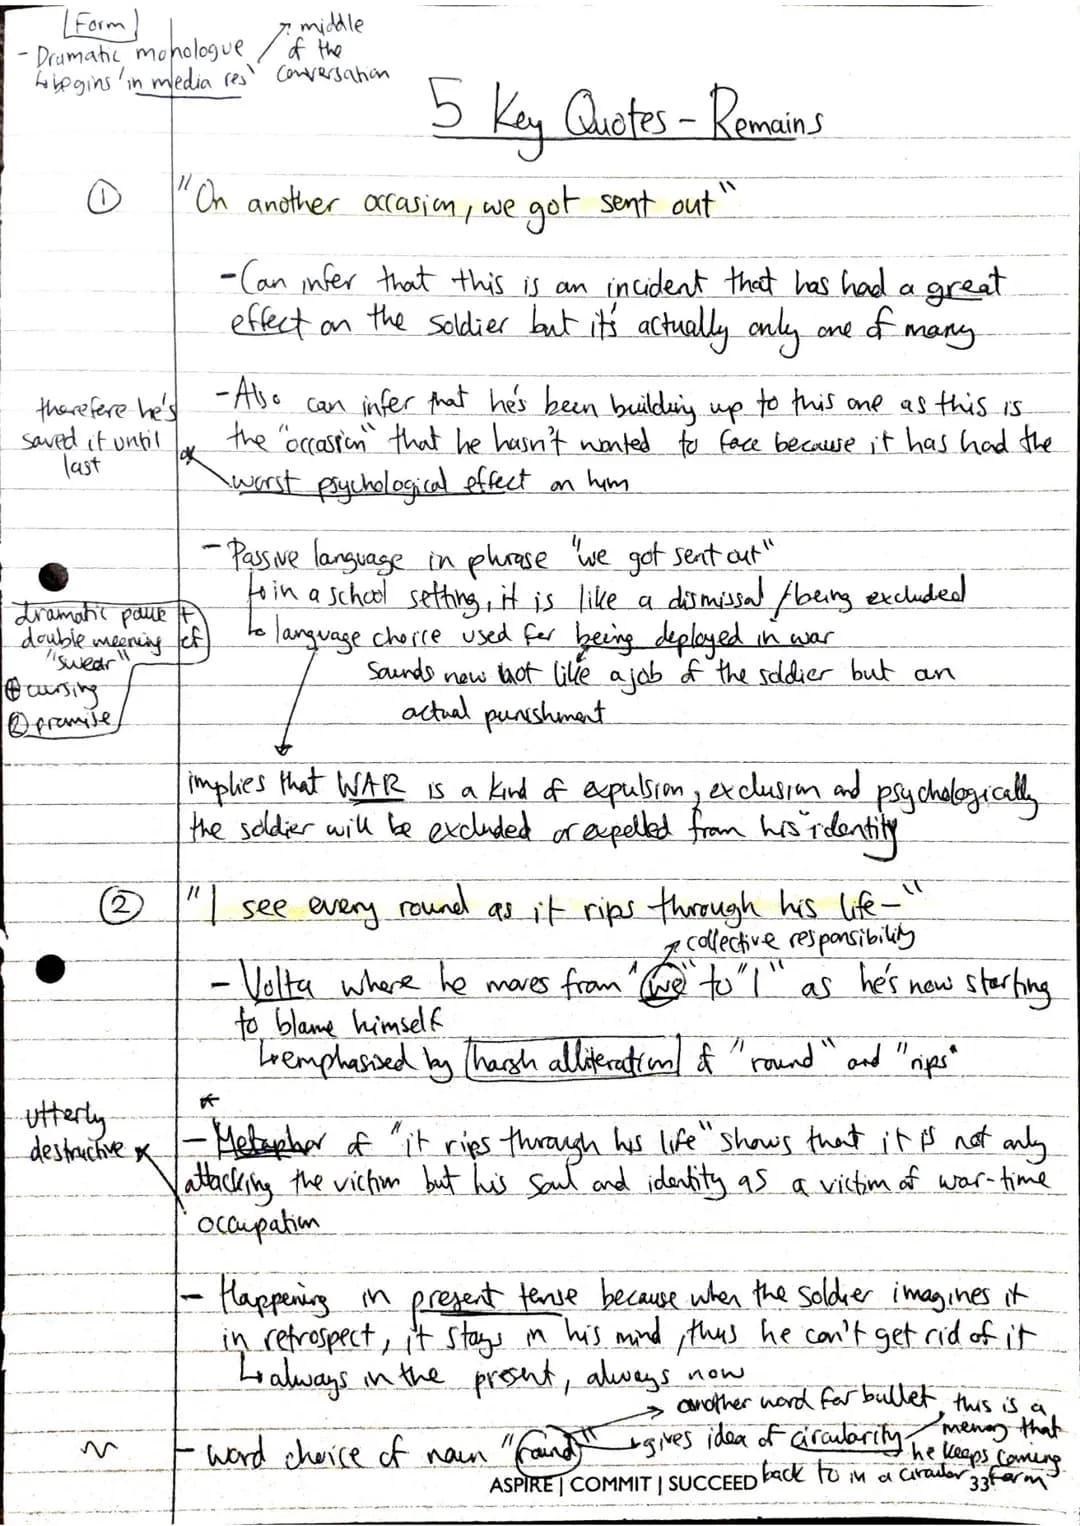 [Form]
- Dramatic monologue
↳ begins 'in media res'
↗ middle
of the
conversation
5 Key Quotes - Remains
① "On another occasion, we got sent out"
- Can infer that this is an incident that has had a great
effect on the soldier but it's actually only one of many
- Also can infer that he's been building up to this one as this is
the "occasion" that he hasn't wanted to face because it has had the
worst psychological effect on him
therefore he's
saved it until
last
- Passive language in phrase "we got sent out"
↳ in a school setting, it is like a dismissal / being excluded
↳ language choice used for being deployed in war
sounds now not like a job of the soldier but an
actual punishment
dramatic pause +
double meaning of
"swear"
① cursing
② promise
implies that WAR is a kind of expulsion, exclusion and psychologically
the soldier will be excluded or expelled from his identity
② "I see every round as it rips through his life-"
↗ collective responsibility
- Volta where he moves from "we" to "I" as he's now starting
to blame himself
↳ emphasised by [harsh alliteration] of "round" and "rips"
*
utterly
destructive *
- Metaphor of "it rips through his life" shows that it is not only
attacking the victim but his soul and identity as a victim of war-time
occupation
- Happening in present tense because when the soldier imagines it
in retrospect, it stays in his mind, thus he can't get rid of it
↳ always in the present, always now
→ another word for bullet, this is a
- word choice of noun "round" ↳ gives idea of circularity / memory that
he keeps coming
back to in a circular form
ASPIRE | COMMIT | SUCCEED
33